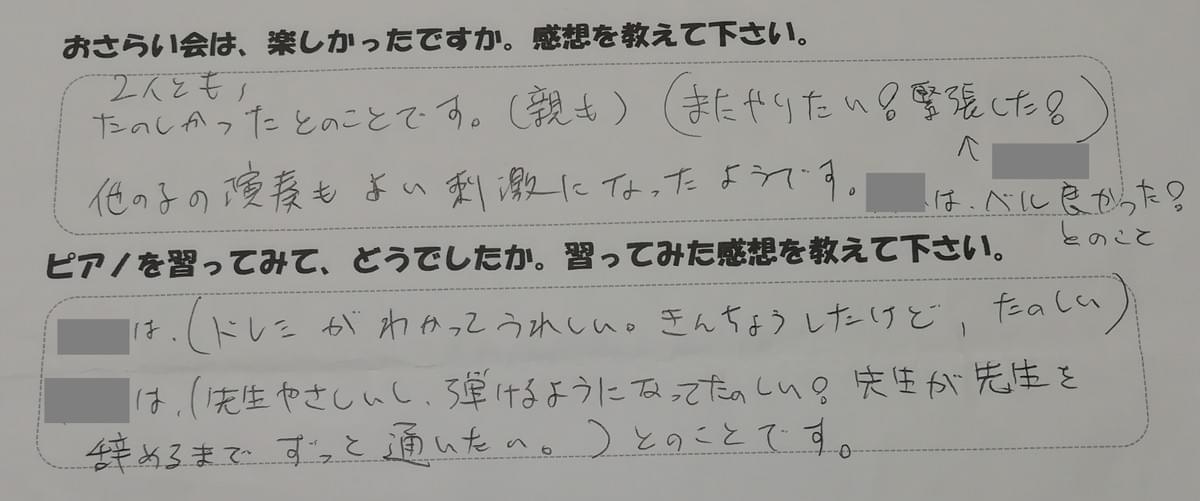 おさらい会は、楽しかったですか。感想を教えて下さい。
2人とも、
たのしかったとのことです。(親も) (またやりたい? 緊張した?)
↑
他の子の演奏もよい刺激になったようです。 は、ベル良かった?
とのこと
ピアノを習ってみて、どうでしたか。習ってみた感想を教えて下さい。
は、(ドレミがわかってうれしい。きんちょうしたけど、たのしい)
は、(先生やさしいし、弾けるようになってたのしい? 先生が先生を
辞めるまでずっと通いたい。)とのことです。